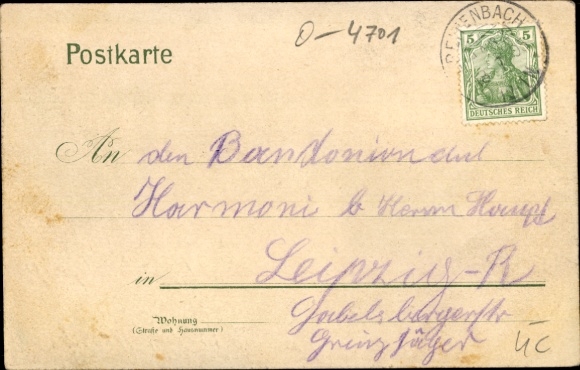 O-4701
Postkarte
5 5
DEUTSCHES REICH
An den Bandonion club
Harmoni b Herrn Haupt
in Leipzig-R
Wohnung
(Straße und Hausnummer)
Gabelsbergerstr
Grenzjäger